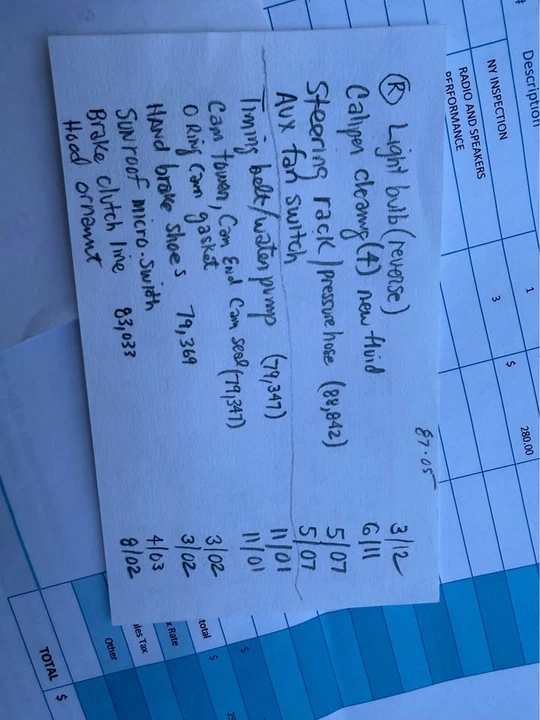 Description
NY INSPECTION 1 $ 280.00
RADIO AND SPEAKERS 3
PERFORMANCE
87.05
(R) Light bulb (reverse) 3/12
Caliper cleaning (4) new fluid 6/11
Steering rack/pressure hose (88,842) 5/07
Aux fan switch 5/07
Timing belt/water pump (79,347) 11/01
Cam tower, Cam End Cam seal (79,347) 11/01
O Ring Cam gasket 3/02
HAND brake shoes 79,369 3/02
Sunroof micro.switch 4/03
Brake clutch line 83,033 8/02
Hood ornamnt
$
total $
x Rate
les Tax
Other
TOTAL $